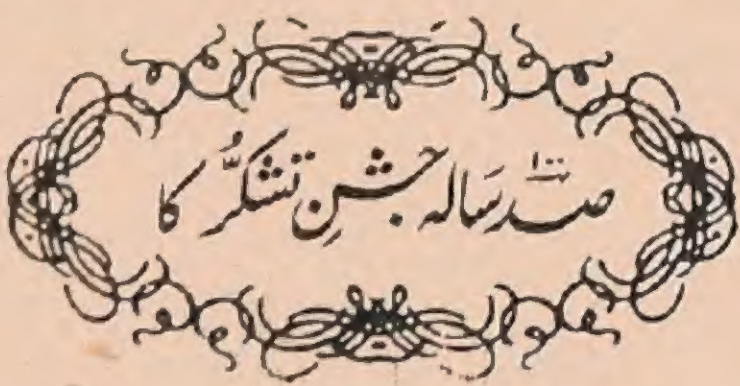 صد سالہ جشنِ تشکُّر کا